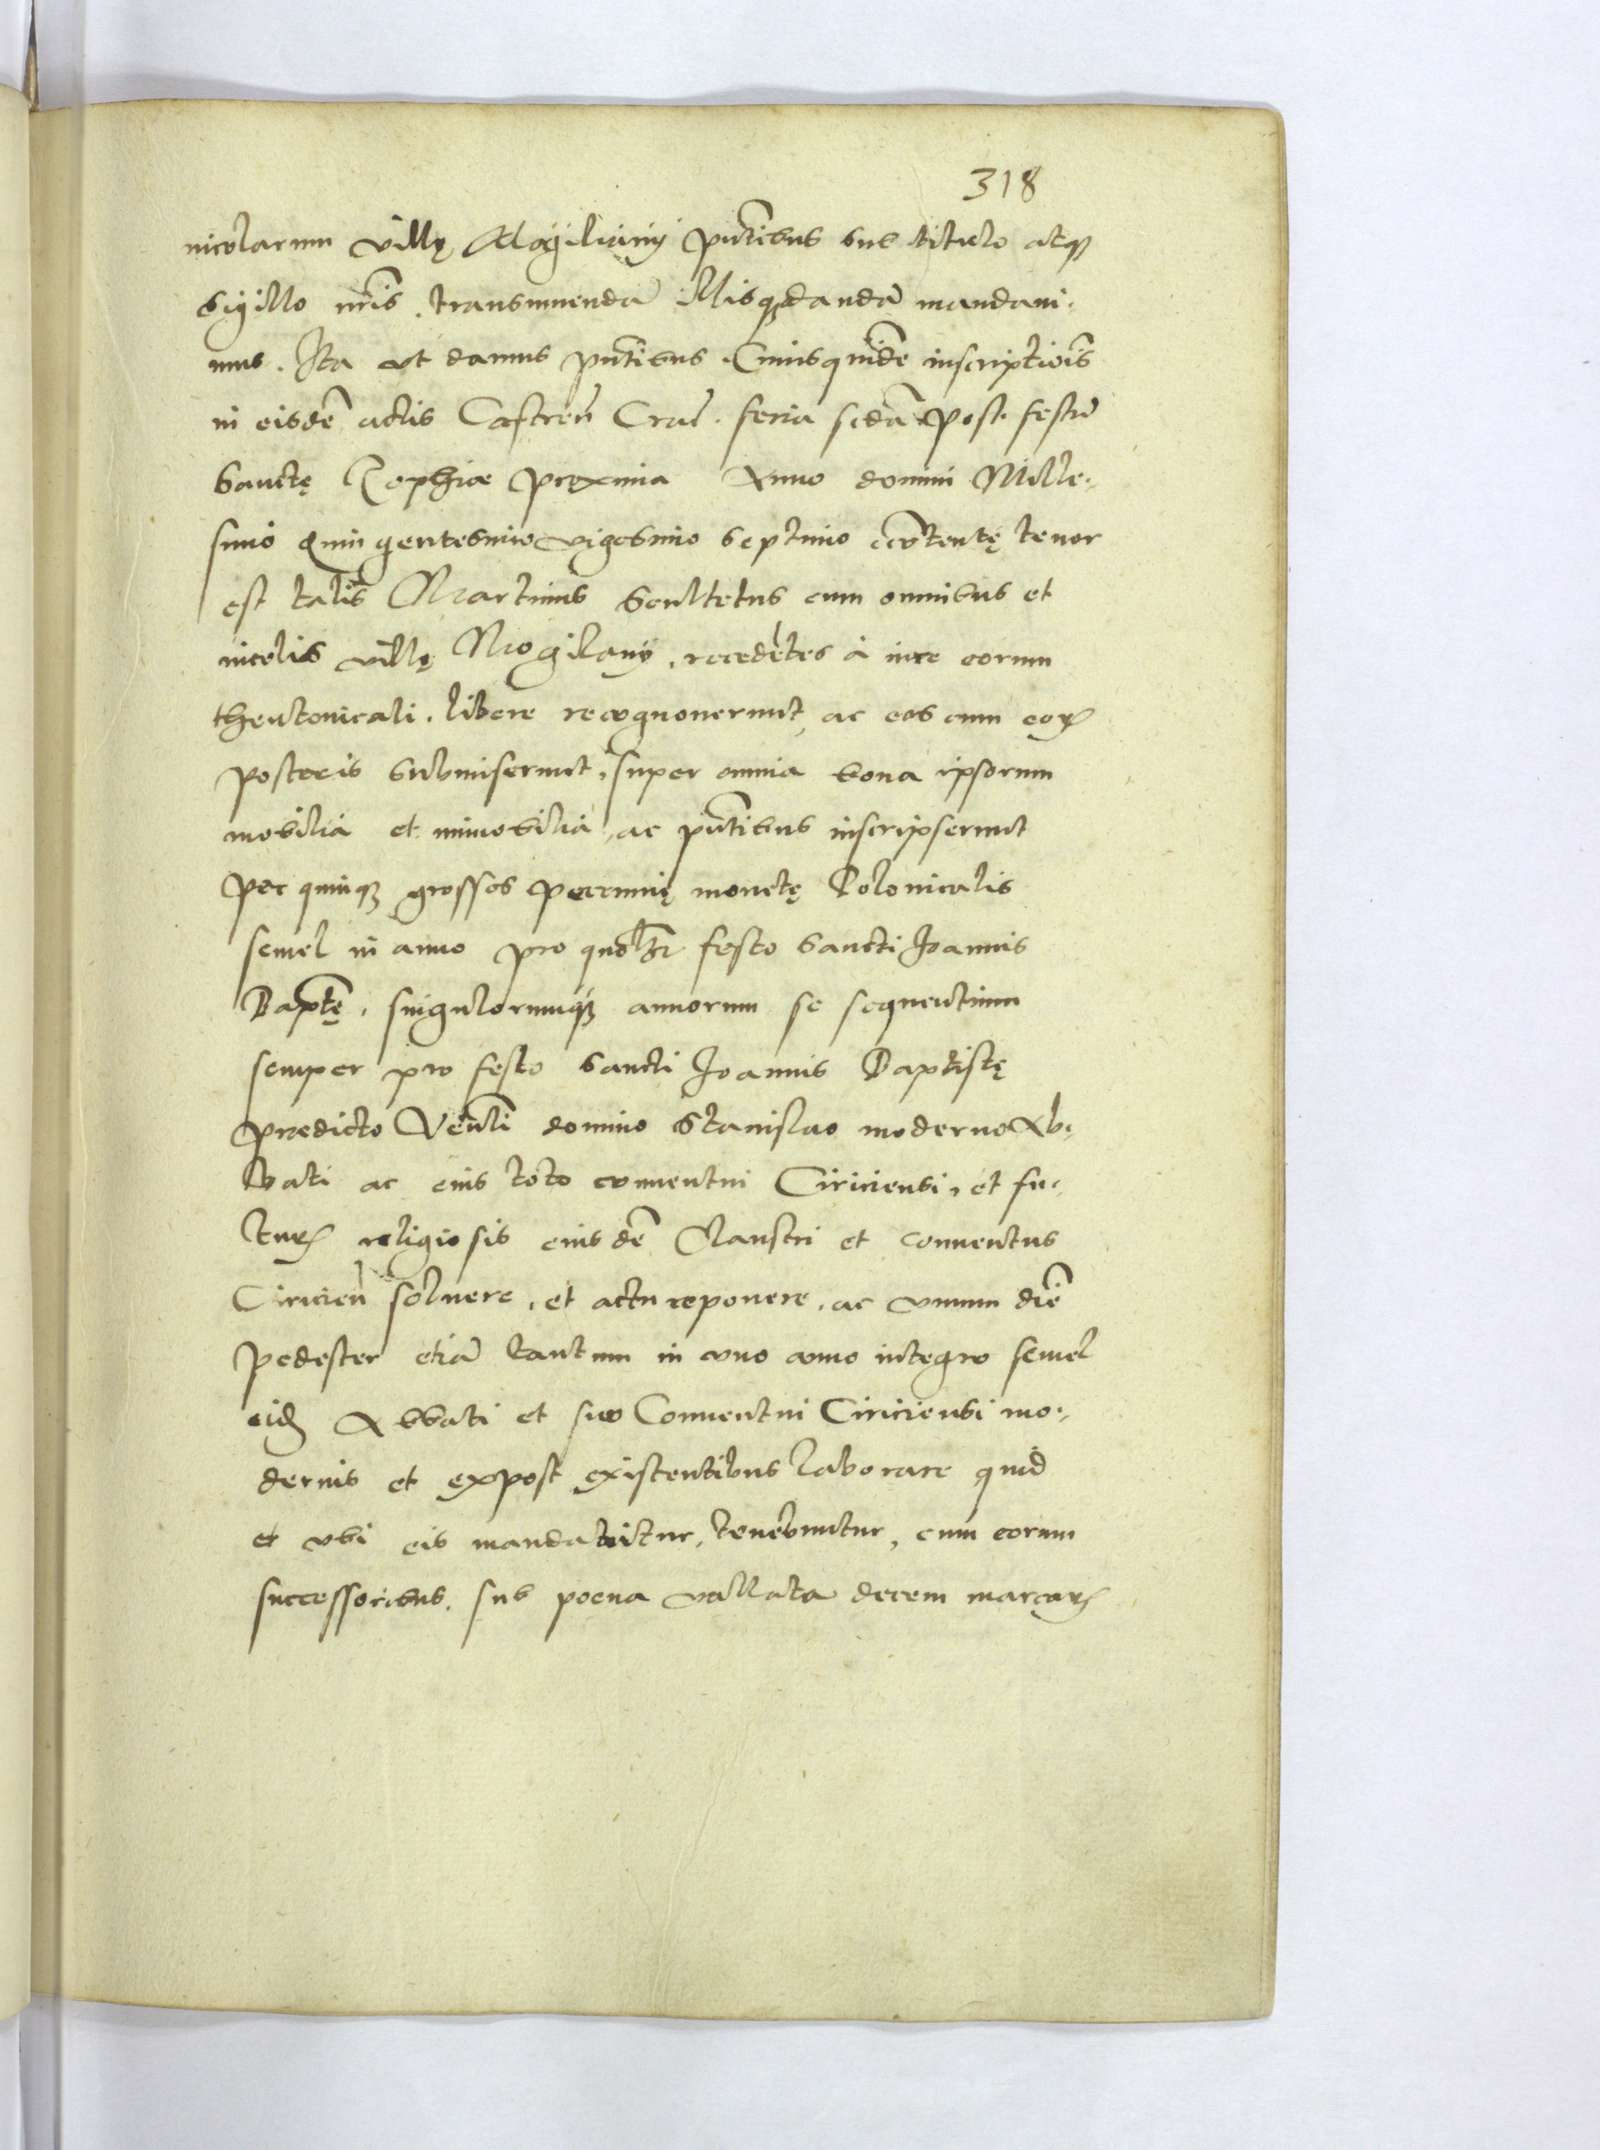 318
nicolarum villę Mogiliany pñtibus sub titulo atq̃
sigillo nr̃is transmuendã illisq̃ dandã mandaui-
mus. Ita vt damus pñtibus. Cuiusquidẽ inscriptiõis
in eisdẽ actis Castreñ Crac̃. feria scdã post festũ
Sanctę Zophiæ proxima Anno domini Mille-
simo Quingentesimo vigesimo septimo cõtentę tenor
est talis Martinus scultetus cum omnibus et
incolis villę Mogilany, recedẽtes à iure eorum
theutonicali. libere recognouerunt, ac eos cum eoꝝ
posteris submiserunt, super omnia bona ipsorum
mobilia et immobilia, ac pñtibus inscripserunt
per quinq̃ grossos pecunię monetę Polonicalis
semel in anno pro quolʒ festo sancti Joannis
Baptę̃, singulorumq̃ annorum se sequentium
semper pro festo Sancti Joannis Baptistę
predicto Veñli domino Stanislao moderno Ab-
bati ac eius toto conuentui Ciriciensi, et fu-
turꝭ religiosis eiusdẽ Claustri et conuentus
Ciricieñ soluere, et actu reponere, ac vnum diẽ
pedester etiã tantum in vno anno integro semel
eidẽ Abbati et suo Conuentui Ciriciensi mo-
dernis et expost existentibus laborare quid
et vbi eis mandabitur, tenebuntur, cum eorum
successoribus. sub poena vallata decem marcaꝝ